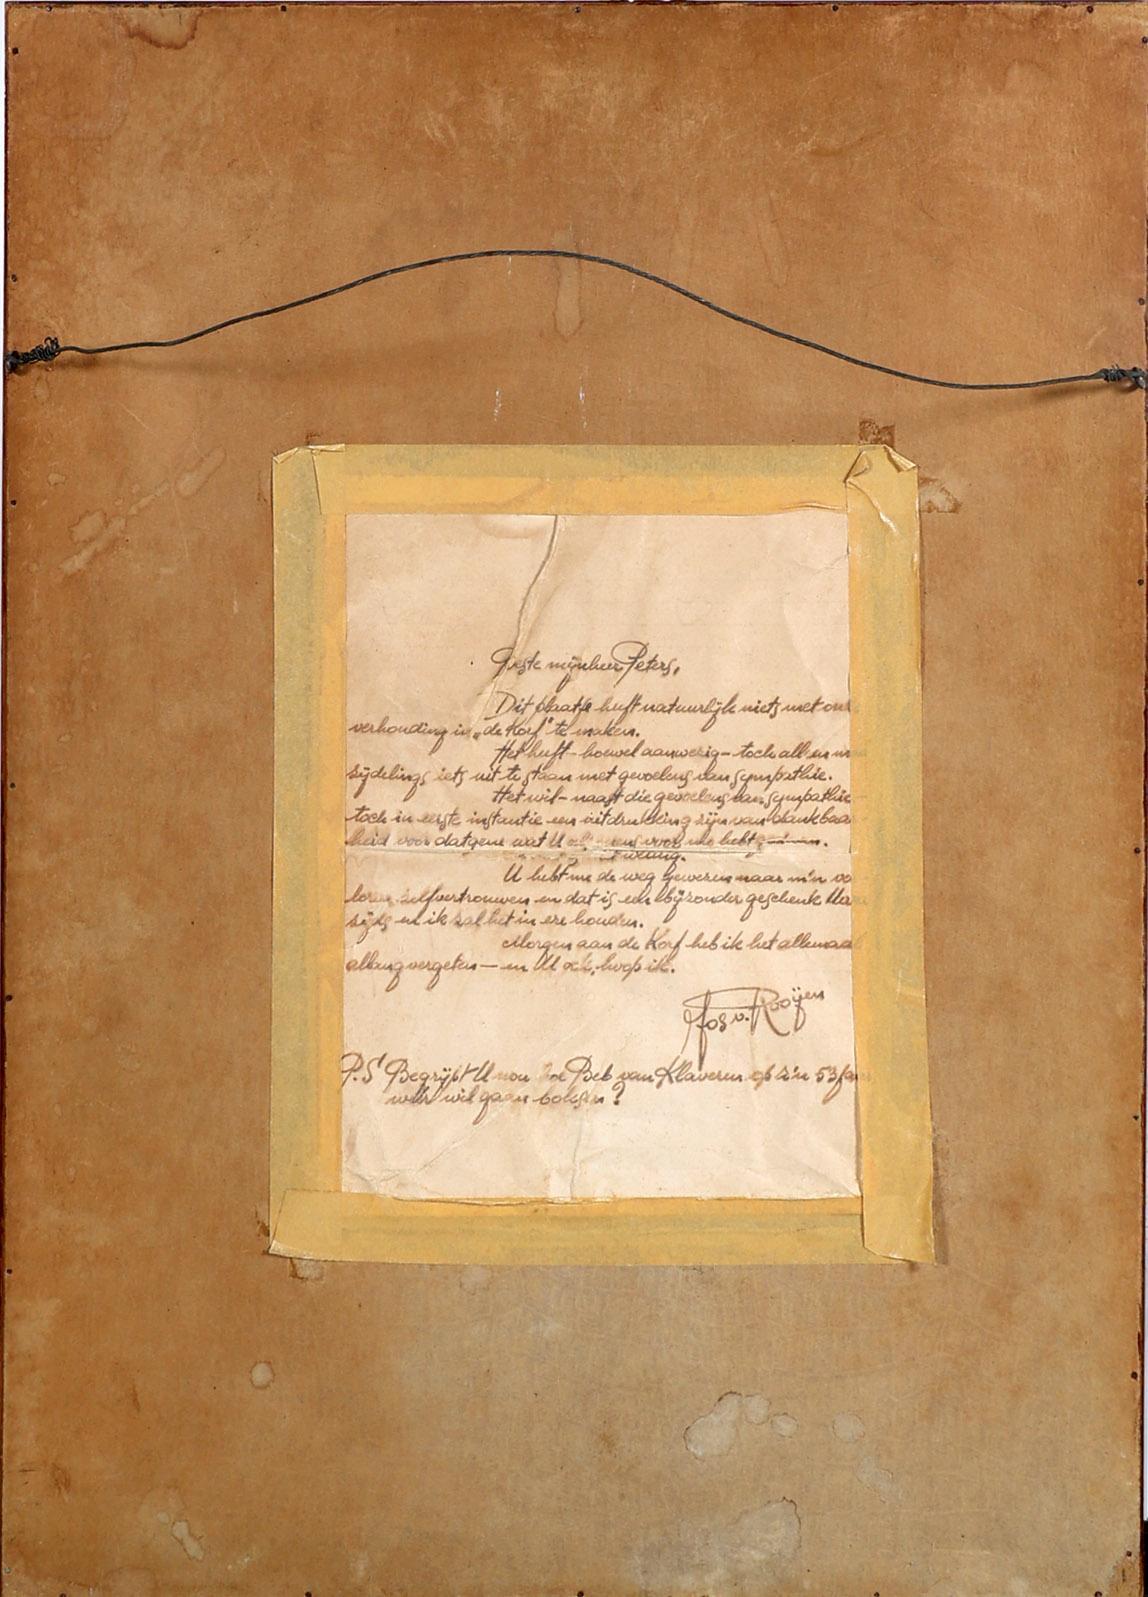 Beste mijnheer Peters,
Dit plaatje heeft natuurlijk niets met on
verhouding in „de Korf" te maken.
Het heeft - hoewel aanwezig - toch alleen m
zijdelings iets uit te staan met gevoelens van sympathie.
Het wil - naast die gevoelens van sympathie
toch in eerste instantie een uitdrukking zijn van dankbaar
heid voor datgene wat U voor me hebt
U hebt me de weg gewezen naar m'n ve
loren zelfvertrouwen en dat is een bijzonder geschenk Uwer
zijds en ik zal het in ere houden.
Morgen aan de Korf heb ik het allemaal
allang vergeten — en U ook, hoop ik.
Jos v. Rooijen
P.S Begrijpt U nou hoe Beb van Klaveren op z'n 53 jaar
weer wil gaan boksen?